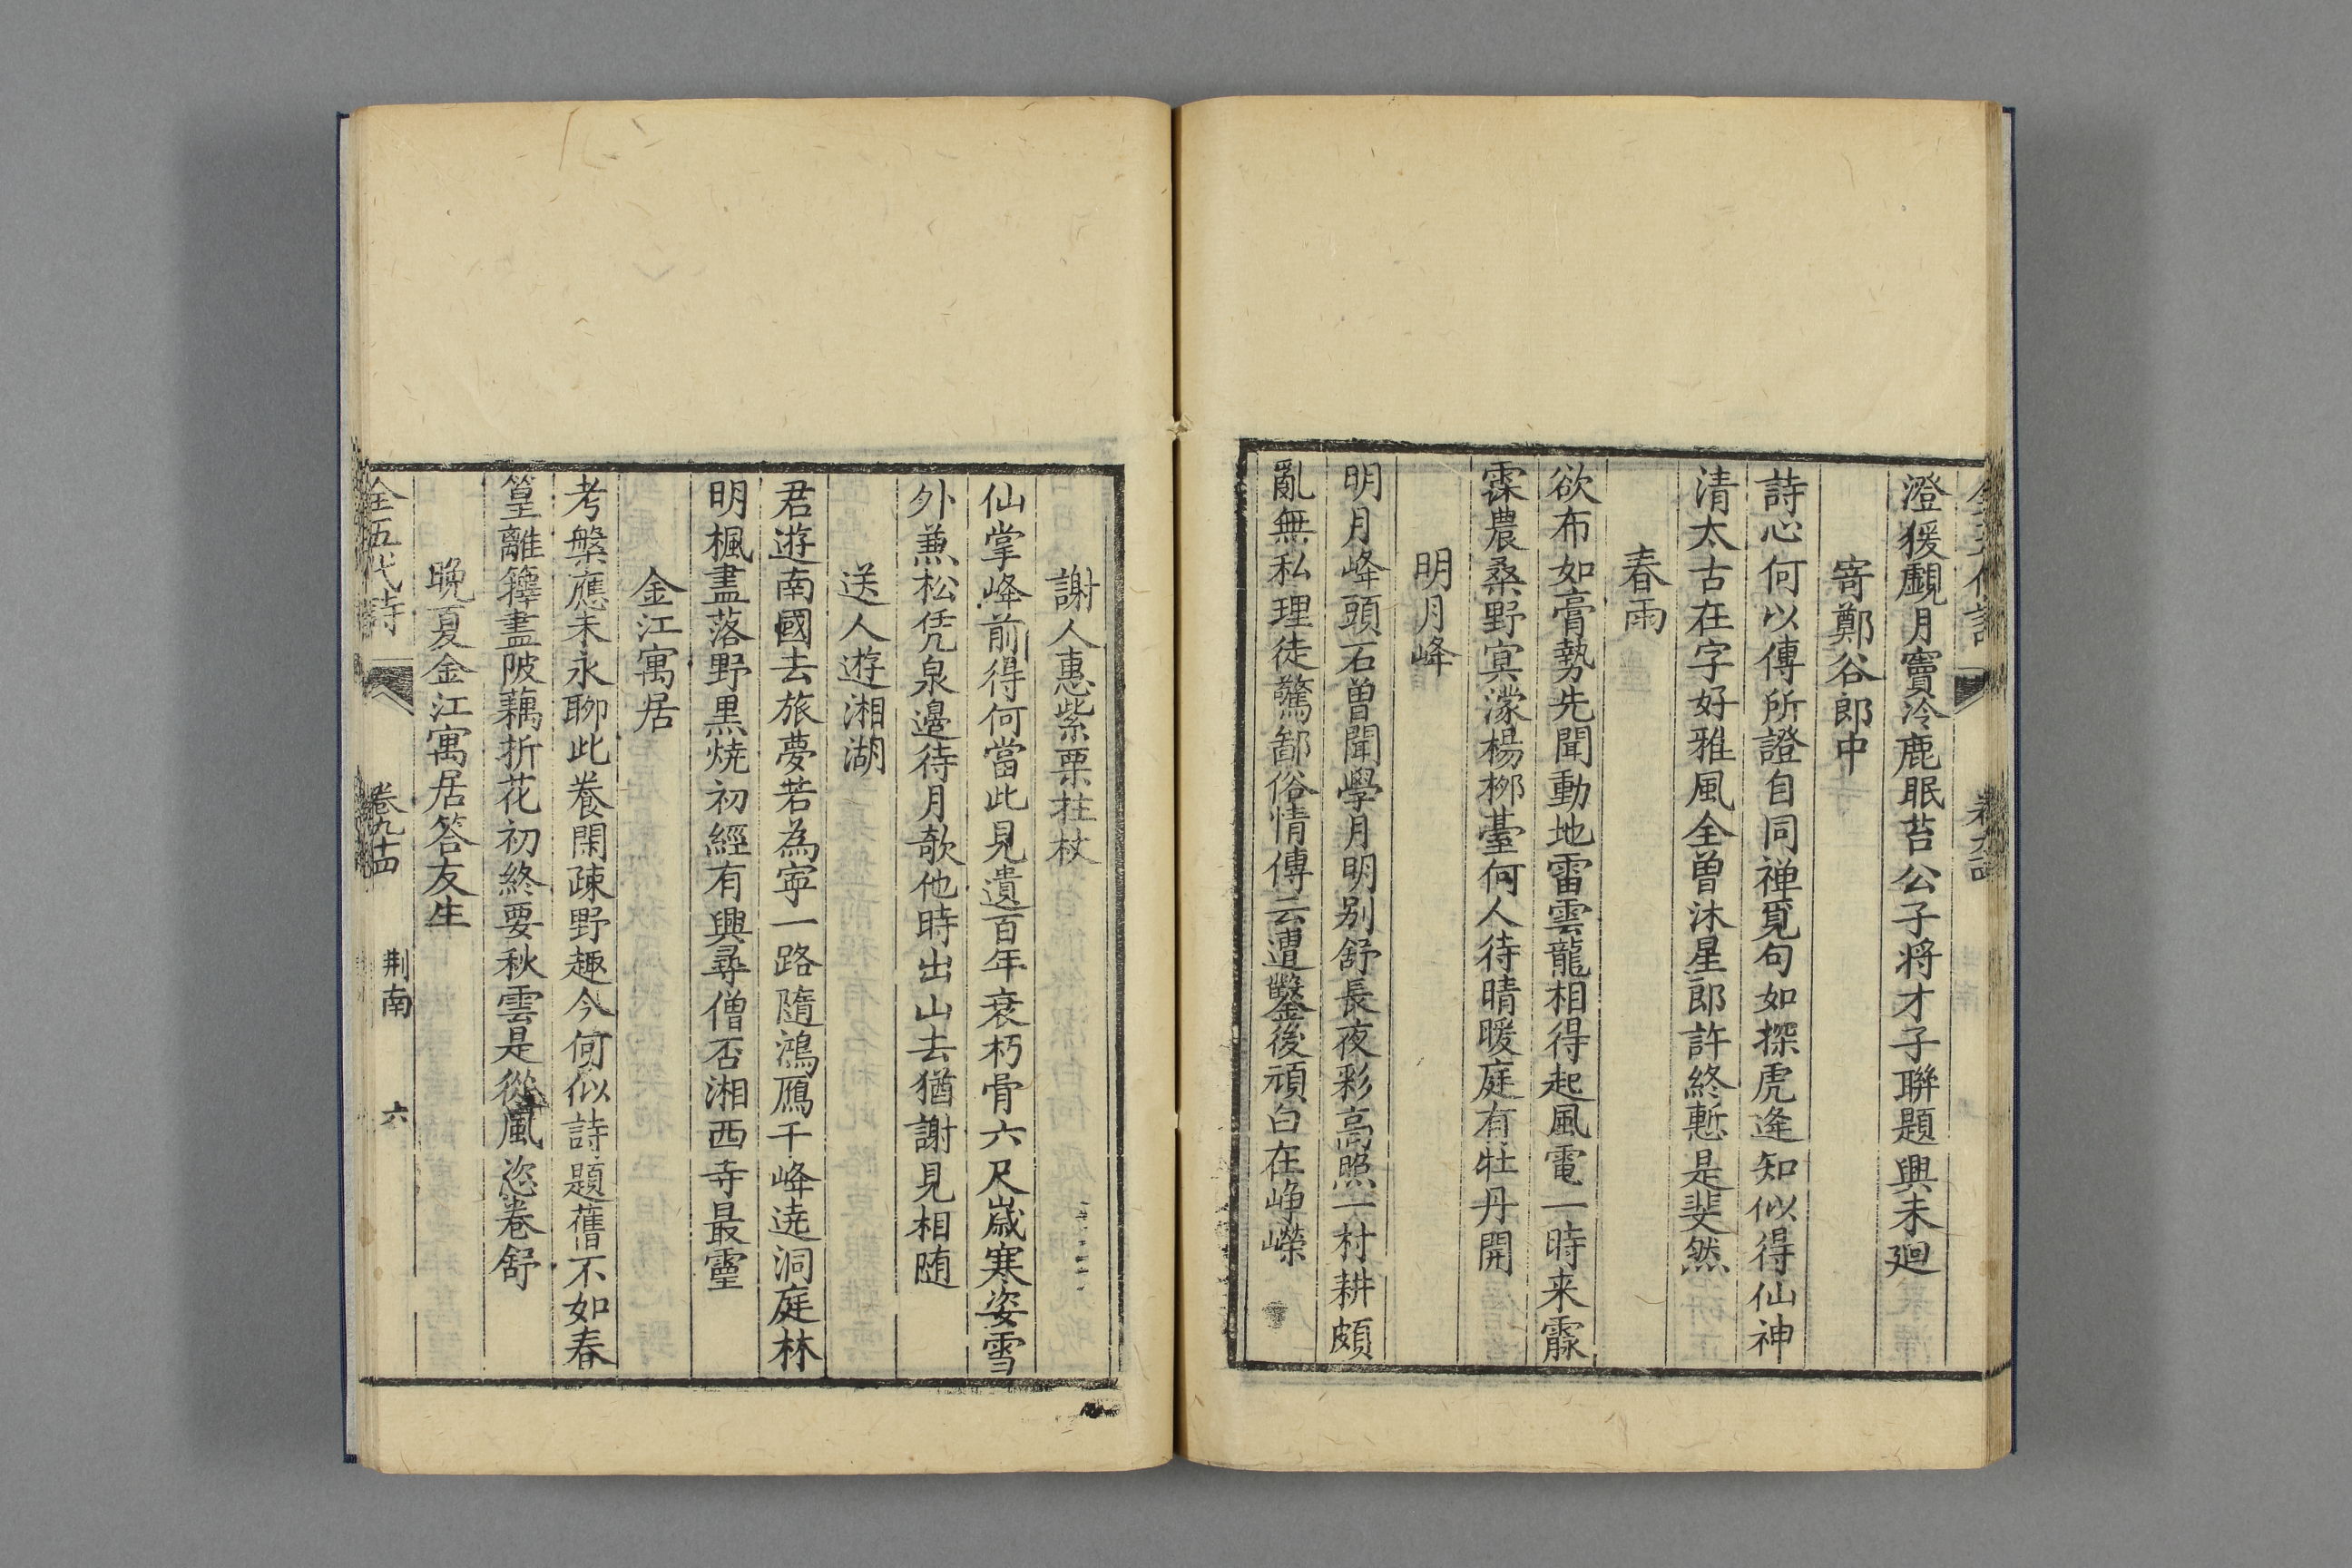 澄猨覰月竇冷鹿眠苔公子将才子聯題興未廻
寄鄭谷郎中
詩心何以傳所證自同禅覓句如探虎逄知似得仙神
清太古在字好雅風全曽沐星郎許終慙是斐然
春雨
欲布如膏勢先聞動地雷雲龍相得起風電一時来霡
霂農桑野㝠濛楊栁臺何人待晴暖庭有牡丹開
明月峰
明月峰頭石曽聞學月明别舒長夜彩高照一村耕頗
亂無私理徒驚鄙俗情傳云遭鑿後頑白在峥嶸
謝人惠紫栗拄杖
仙掌峰前得何當此見遺百年衰朽骨六尺歲寒姿雪
外兼松凭泉邊待月欹他時出山去猶謝見相随
送人遊湘湖
君遊南國去旅夢若為寜一路隨鴻鴈千峰遶洞庭林
明楓盡落野黒焼初經有興尋僧否湘西寺最靈
金江寓居
考槃應未永聊此養閑疎野趣今何似詩題舊不如春
篁離籜盡陂藕折花初終要秋雲是從風恣卷舒
晚夏金江寓居答友生
全五代詩
卷九十四
荆南
六